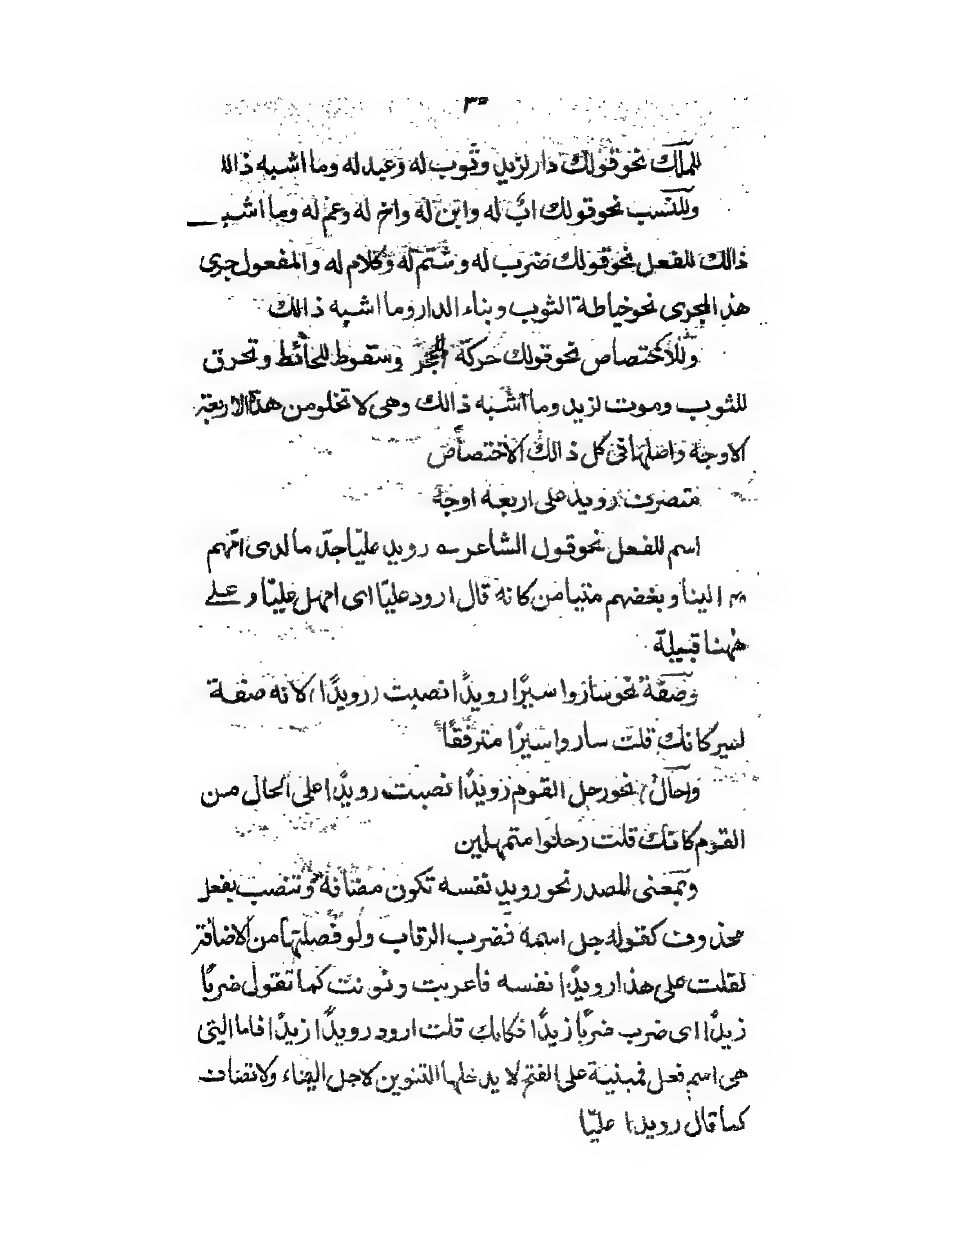 ٣٥
للملك نحو قولك دار لزيد وثوب له وعبد له وما اشبه ذالك
وللنسب نحو قولك ابٌ له وابن له واخ له وعم له وما اشبه
ذالك للفعل نحو قولك ضرب له وشتم له وكلام له والمفعول جرى
هذ المجرى نحو خياطة الثوب وبناء الدار وما اشبه ذالك
وللاختصاص نحو قولك حركة الحجر وسقوط للحائط وتحرق
للثوب وموت لزيد وما اشبه ذالك وهى لا تخلو من هذا الاربعة
الاوجه واصلها فى كل ذالك الاختصاص
تتصرف رويد على اربعه اوجه
اسم للفعل نحو قول الشاعر سه رويد عليّا جدّ ما لدى امّهم
الينا وبغضهم متيامن كانه قال ارود عليّا اى امهل عليّا وعلى
ههنا قبيلة
وصفة نحو ساروا سيرًا رويدًا نصبت (رويدًا) لانه صفة
لسير كانك قلت ساروا سيرًا مترفقًا
وحال نحو رحل القوم رويدًا نصبت رويدًا على الحال من
القوم كانك قلت رحلوا متمهلين
وبمعنى المصدر نحو رويد نفسه تكون مضافة وتنصب بفعل
محذوف كقوله جل اسمه فضرب الرقاب ولو فصلتها من الاضافة
لقلت على هذا رويدًا نفسه فاعربت ونونت كما تقول ضربًا
زيدًا اى ضرب ضربًا زيدًا فكانك قلت ارود رويدًا زيدًا فاما التى
هى اسم فعل فمبنية على الفتح لا يدخلها التنوين لاجل البناء ولا تضاف
كما قال رويدا عليّا